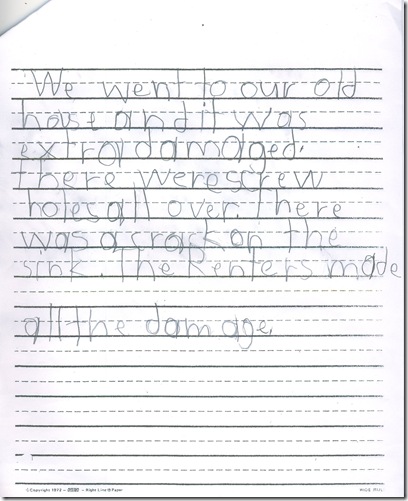 We went to our old
house and it was
extra damaged.
there were screw
holes all over. There
was a crack on the
sink. The Renters made
all the damage.
© Copyright 1972 – – Right Line ® Paper